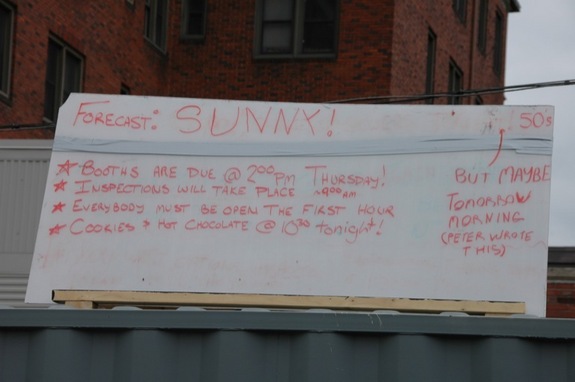 FORECAST: SUNNY! 50s
★ BOOTHS ARE DUE @ 2:00 PM THURSDAY!
★ INSPECTIONS WILL TAKE PLACE ~9:00 AM
★ EVERYBODY MUST BE OPEN THE FIRST HOUR
★ COOKIES + HOT CHOCOLATE @ 10:30 tonight!
BUT MAYBE
TOMORROW
MORNING
(PETER WROTE
THIS)